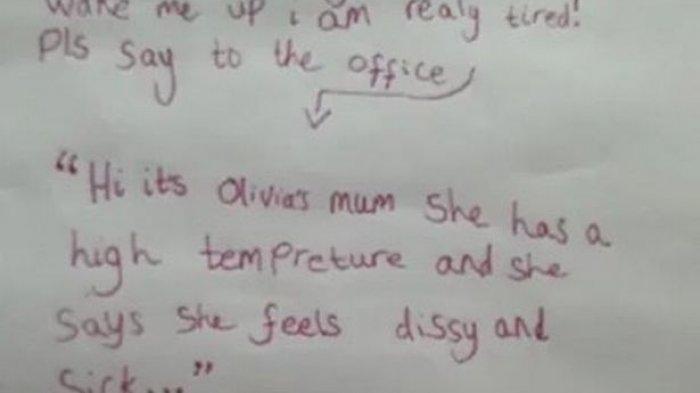 wake me up i am realy tired!
Pls say to the office
"Hi its Olivia's mum She has a
high tempreture and she
says she feels dissy and
sick..."